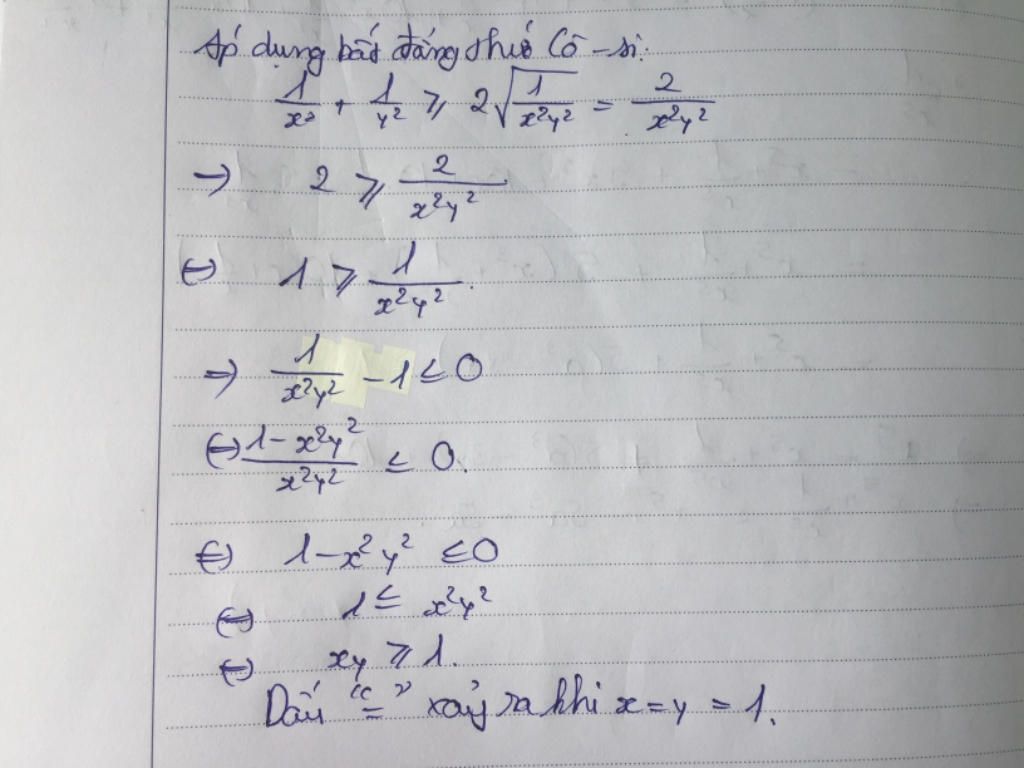 Áp dụng bất đẳng thức Cô-si:
1/x² + 1/y² ⩾ 2√(1/(x²y²)) = 2/(x²y²)
→ 2 ⩾ 2/(x²y²)
⇔ 1 ⩾ 1/(x²y²).
⇒ 1/(x²y²) - 1 ≤ 0
⇔ (1-x²y²)/(x²y²) ≤ 0.
⇔ 1-x²y² ≤ 0
⇔ 1 ≤ x²y²
⇔ xy ⩾ 1.
Dấu "=" xảy ra khi x=y=1.